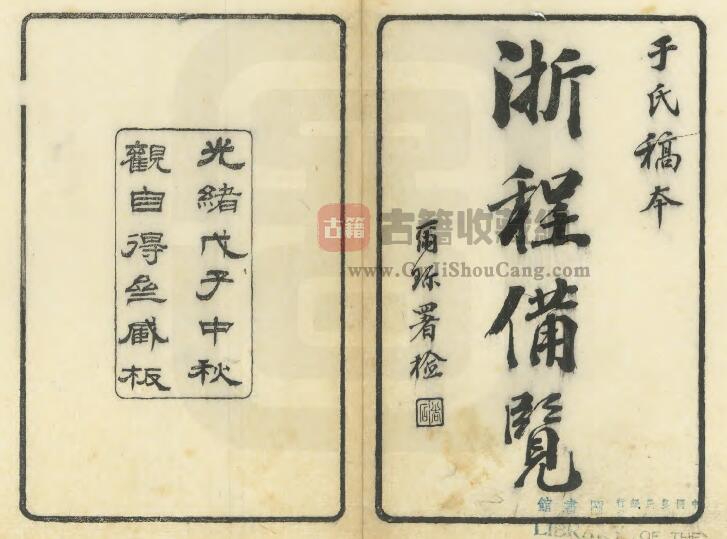 于氏稿本
浙程備覽
爾珎署檢
光緒戊子中秋
觀自得亝臧板
古籍
古籍收藏
www.GuJiShouCang.com
圖書館
LIBRARY OF THE